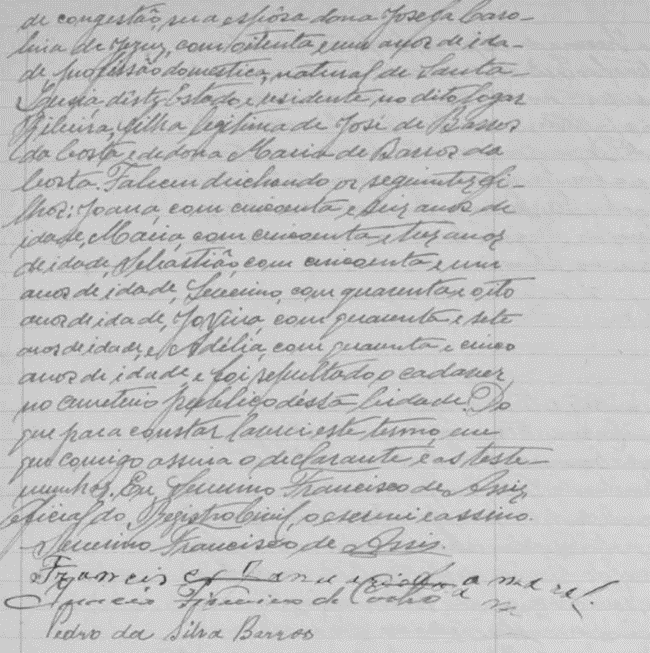 de congestão, sua espôsa dona Josefa Caro-
lina de Jezuz, com oitenta e um anos de ida-
de profissão domestica, natural de Santa
Luzia, deste Estado, e residente no dito logar
Ribeira, filha legitima de José de Barros
da Costa e de dona Maria de Barros da
Costa. Faleceu deichando os seguintes fi-
lhos: Joana, com cincoenta e seiz anos de
idade, Maria, com cincoenta e trez anos
de idade, Sebastião, com cincoenta e um
anos de idade, Severino, com quarenta e oito
anos de idade, Jovina, com quarenta e sete
anos de idade, e Adélia, com quarenta e cinco
anos de idade e foi sepultado o cadaver
no cemeterio publico dessa Cidade. Do
que para constar lavrei este termo, em
que comigo assina o declarante e as teste-
munhas. Eu Severino Francisco de Assiz
Oficial do Registro Civil, o escrevi e assino.
Severino Francisco de Assis.
Francisco
Ignacio de
Pedro da Silva Barros